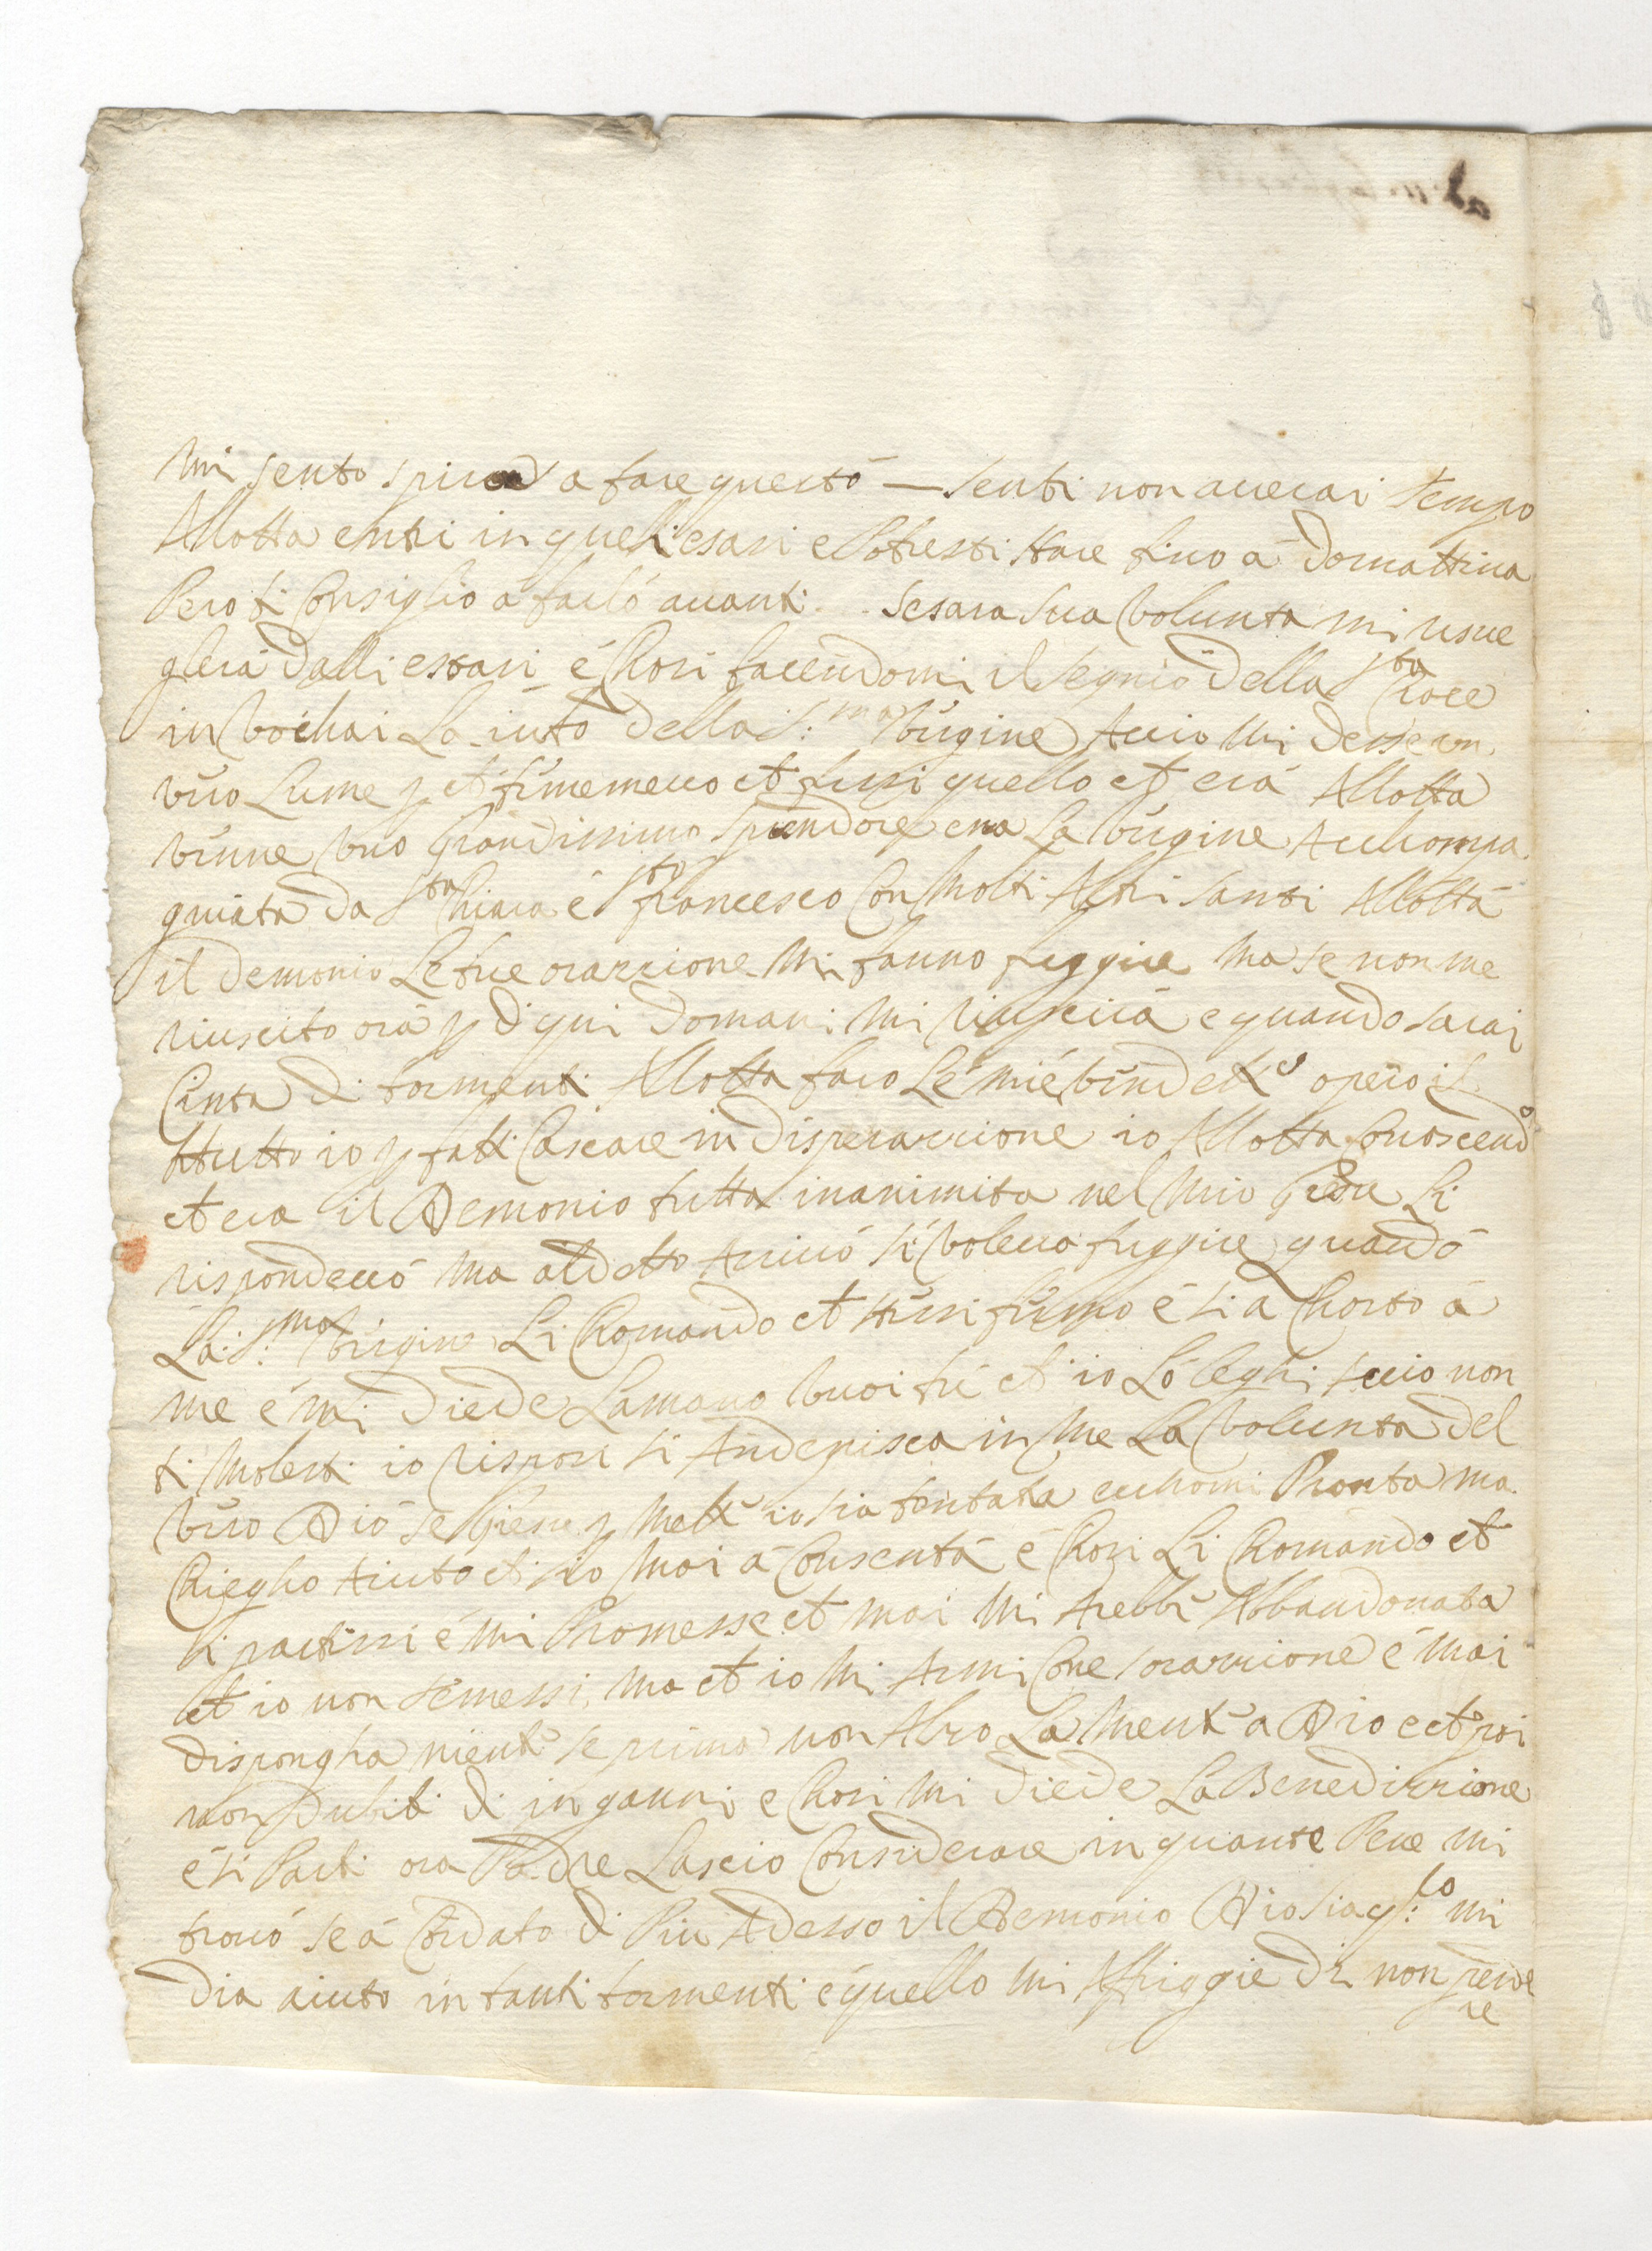 mi sento spirata a fare questó — senti non auerai tempo
Allotta entri in queli esasi e Potresti stare fino á domattina
Pero ti Consiglio á farló auanti. Sesara sua Volunta mi usue
glierá dalli essasi é Chosi facendomi il segnió della Sta Croce
in vochai La iuto della S:ma Virgine Accio mi desse un
vero Lume p et temeuo et fussi quello et erá Allotta
vienne vno Grandissimo Spiendore era La Virgine Acchompa
gniata da Sta Chiara é Sto francesco Con Molti Altri Santi Allottá
il demonio Le tue orazzione mi fanno fuggire ma se non me
riuscito orá p di qui domani mi riuscirá e quando sarai
Cinta di tormenti Allotta faro Lé mié vindette opero il
ttutto io p fatti Cascare in disperazzione io Allotta Conoscendo
et era il Demonio tutta inanimita nel mio Li
rispondeuó ma al detto Arriuó si voleua fuggire quandó
La: S:ma Virgine Li Chomando et stessi fermo é si a Chosto á
me é mi diede La mano vuoi tú et io Ló leghi Accio non
ti molesti io risposi si Andenpisca in me La Volunta del
vero Dió se p mette io sia tentata ecchomi Pronta ma
Chiegho Aiuto et io mai á Consentá é Chosi Li Chomando et
si partissi é mi Promesse et mai mi Arebbe Abbandonata
et io non temessi ma et io mi Armi Con e lorazzione é mai
dispongha niente se prima non Alzo La mente a Dio e et poi
non dubiti di inganni e Chosi mi diede La Benedizzione
é si Parti ora Padre Lascio Considerare in quante Pene mi
trouó se á Cordato di Piu Adesso il Demonio Dio sia q:lo mi
dia aiuto in tanti tormenti é quello mi Affriggie di non pende
re